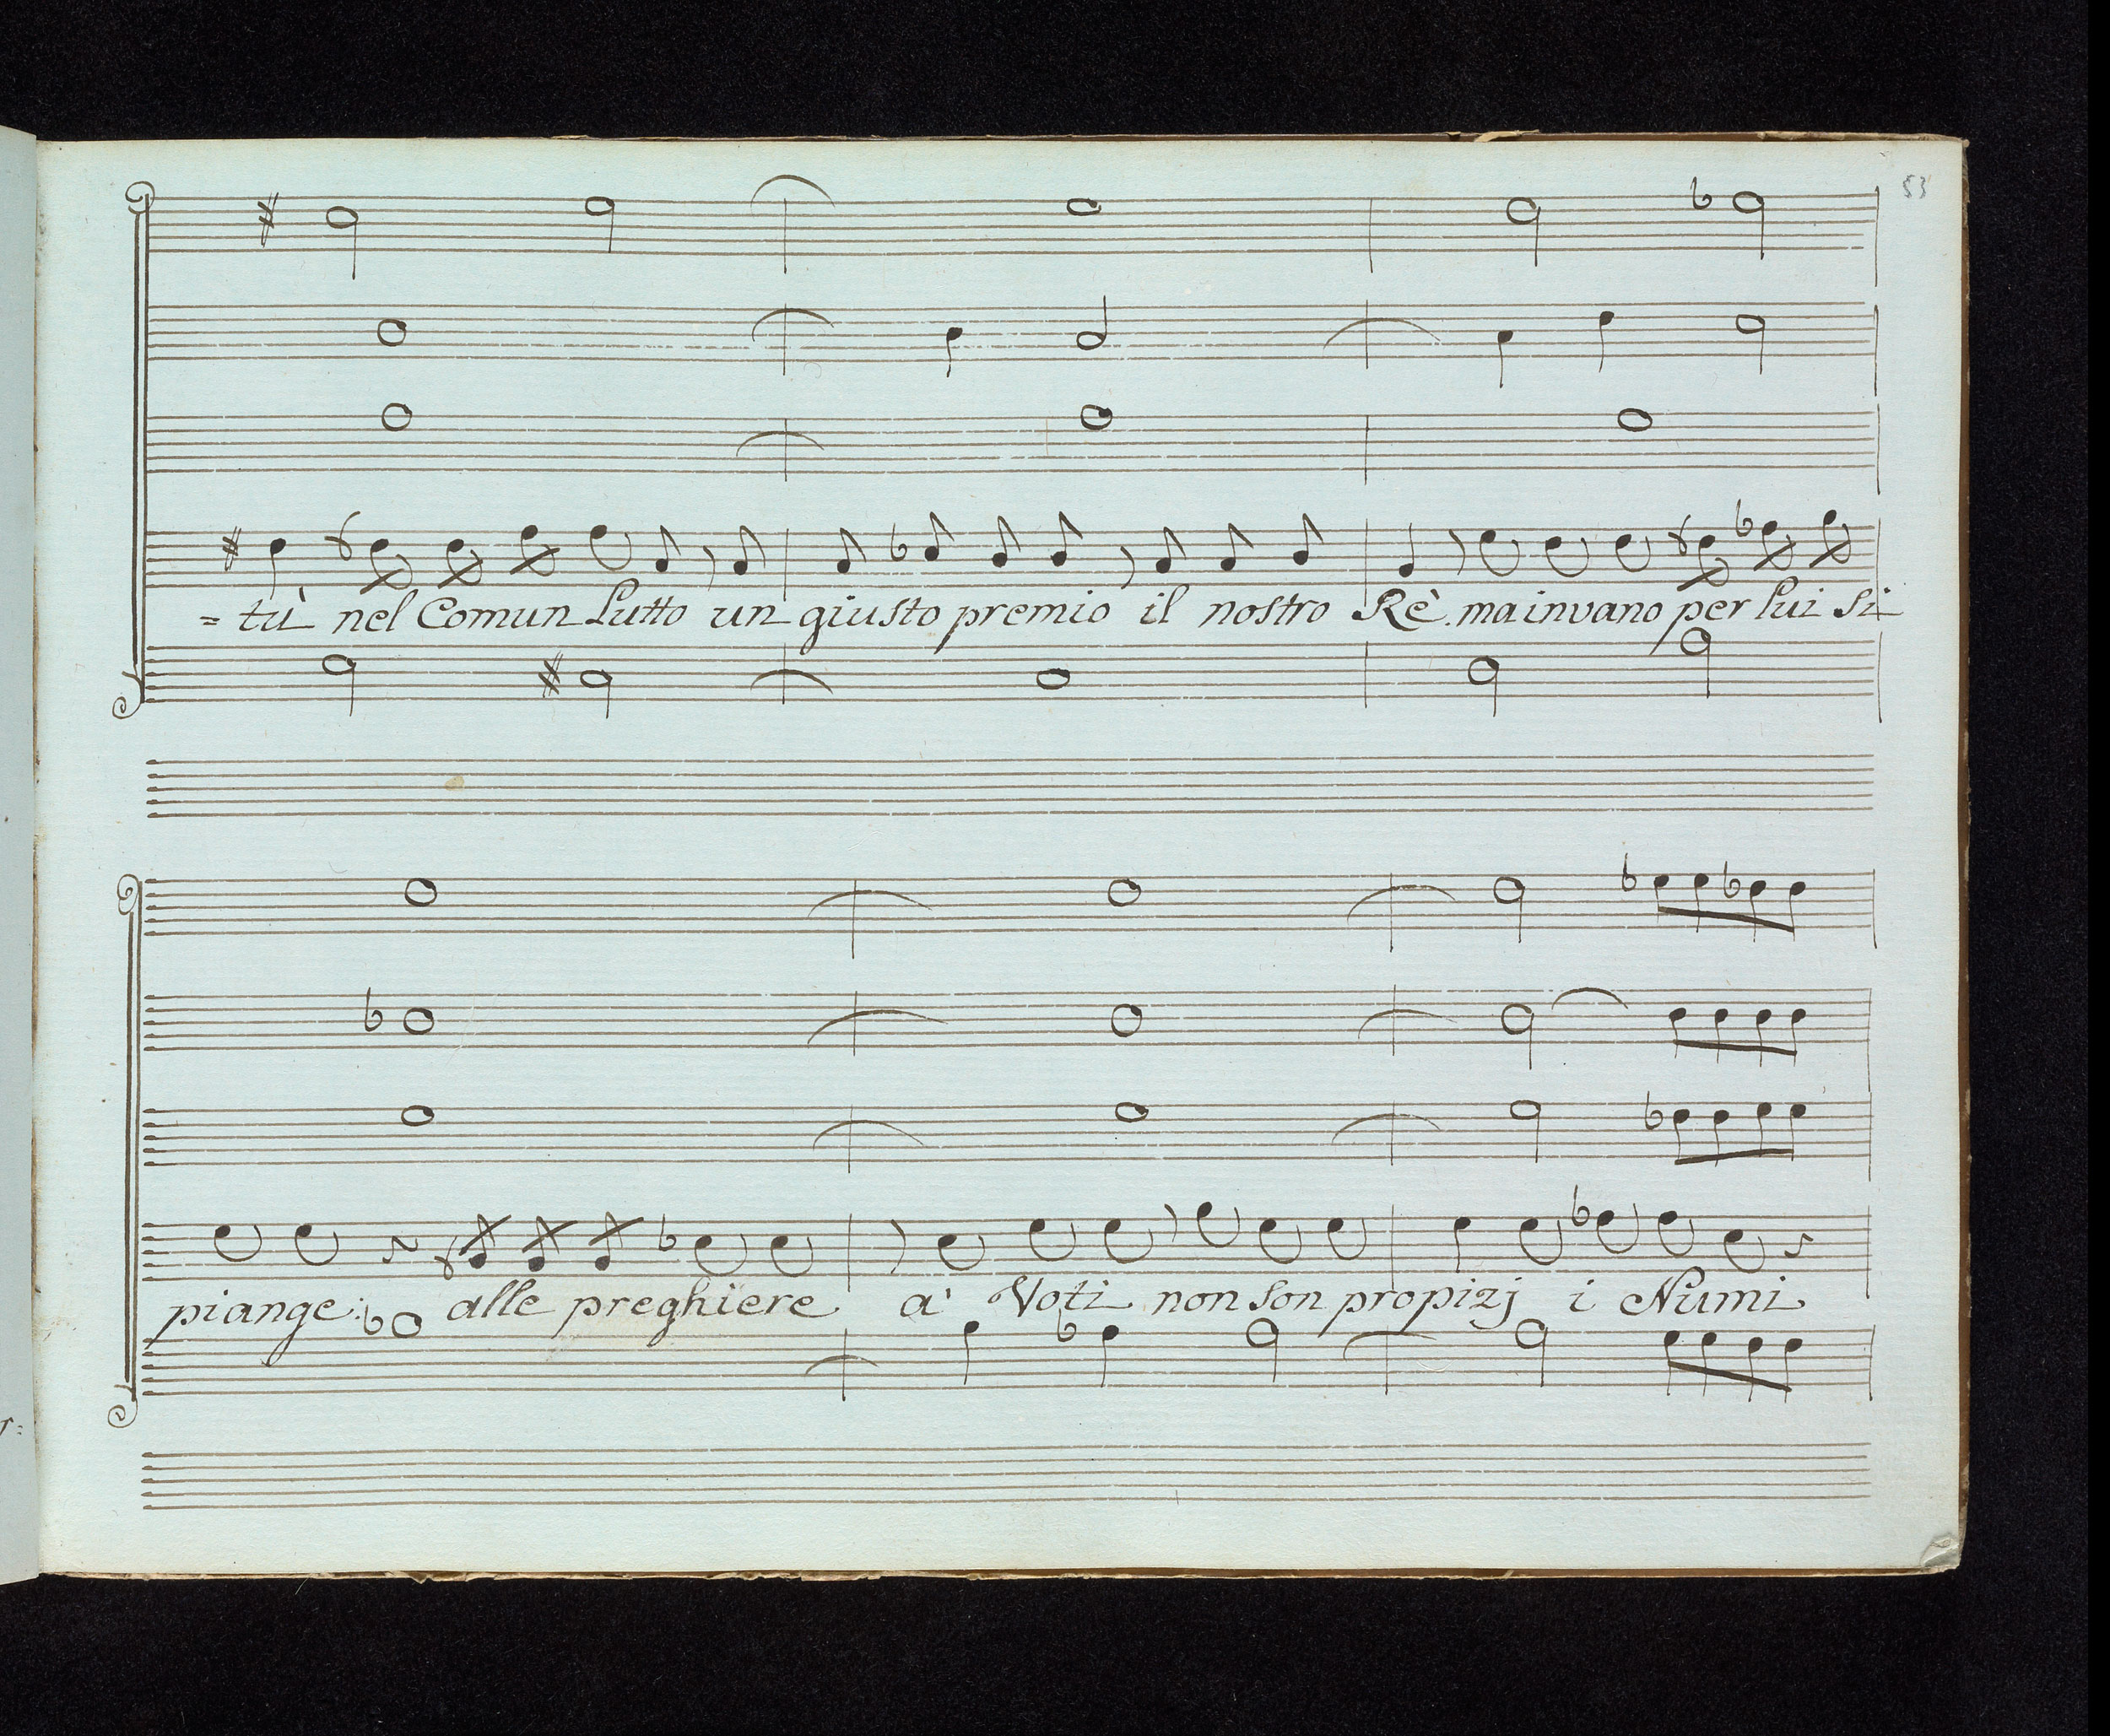 53
=tù nel Comun Lutto un giusto premio il nostro Rè. ma invano per lui si
piange: alle preghiere a' Voti non son propizj i Numi